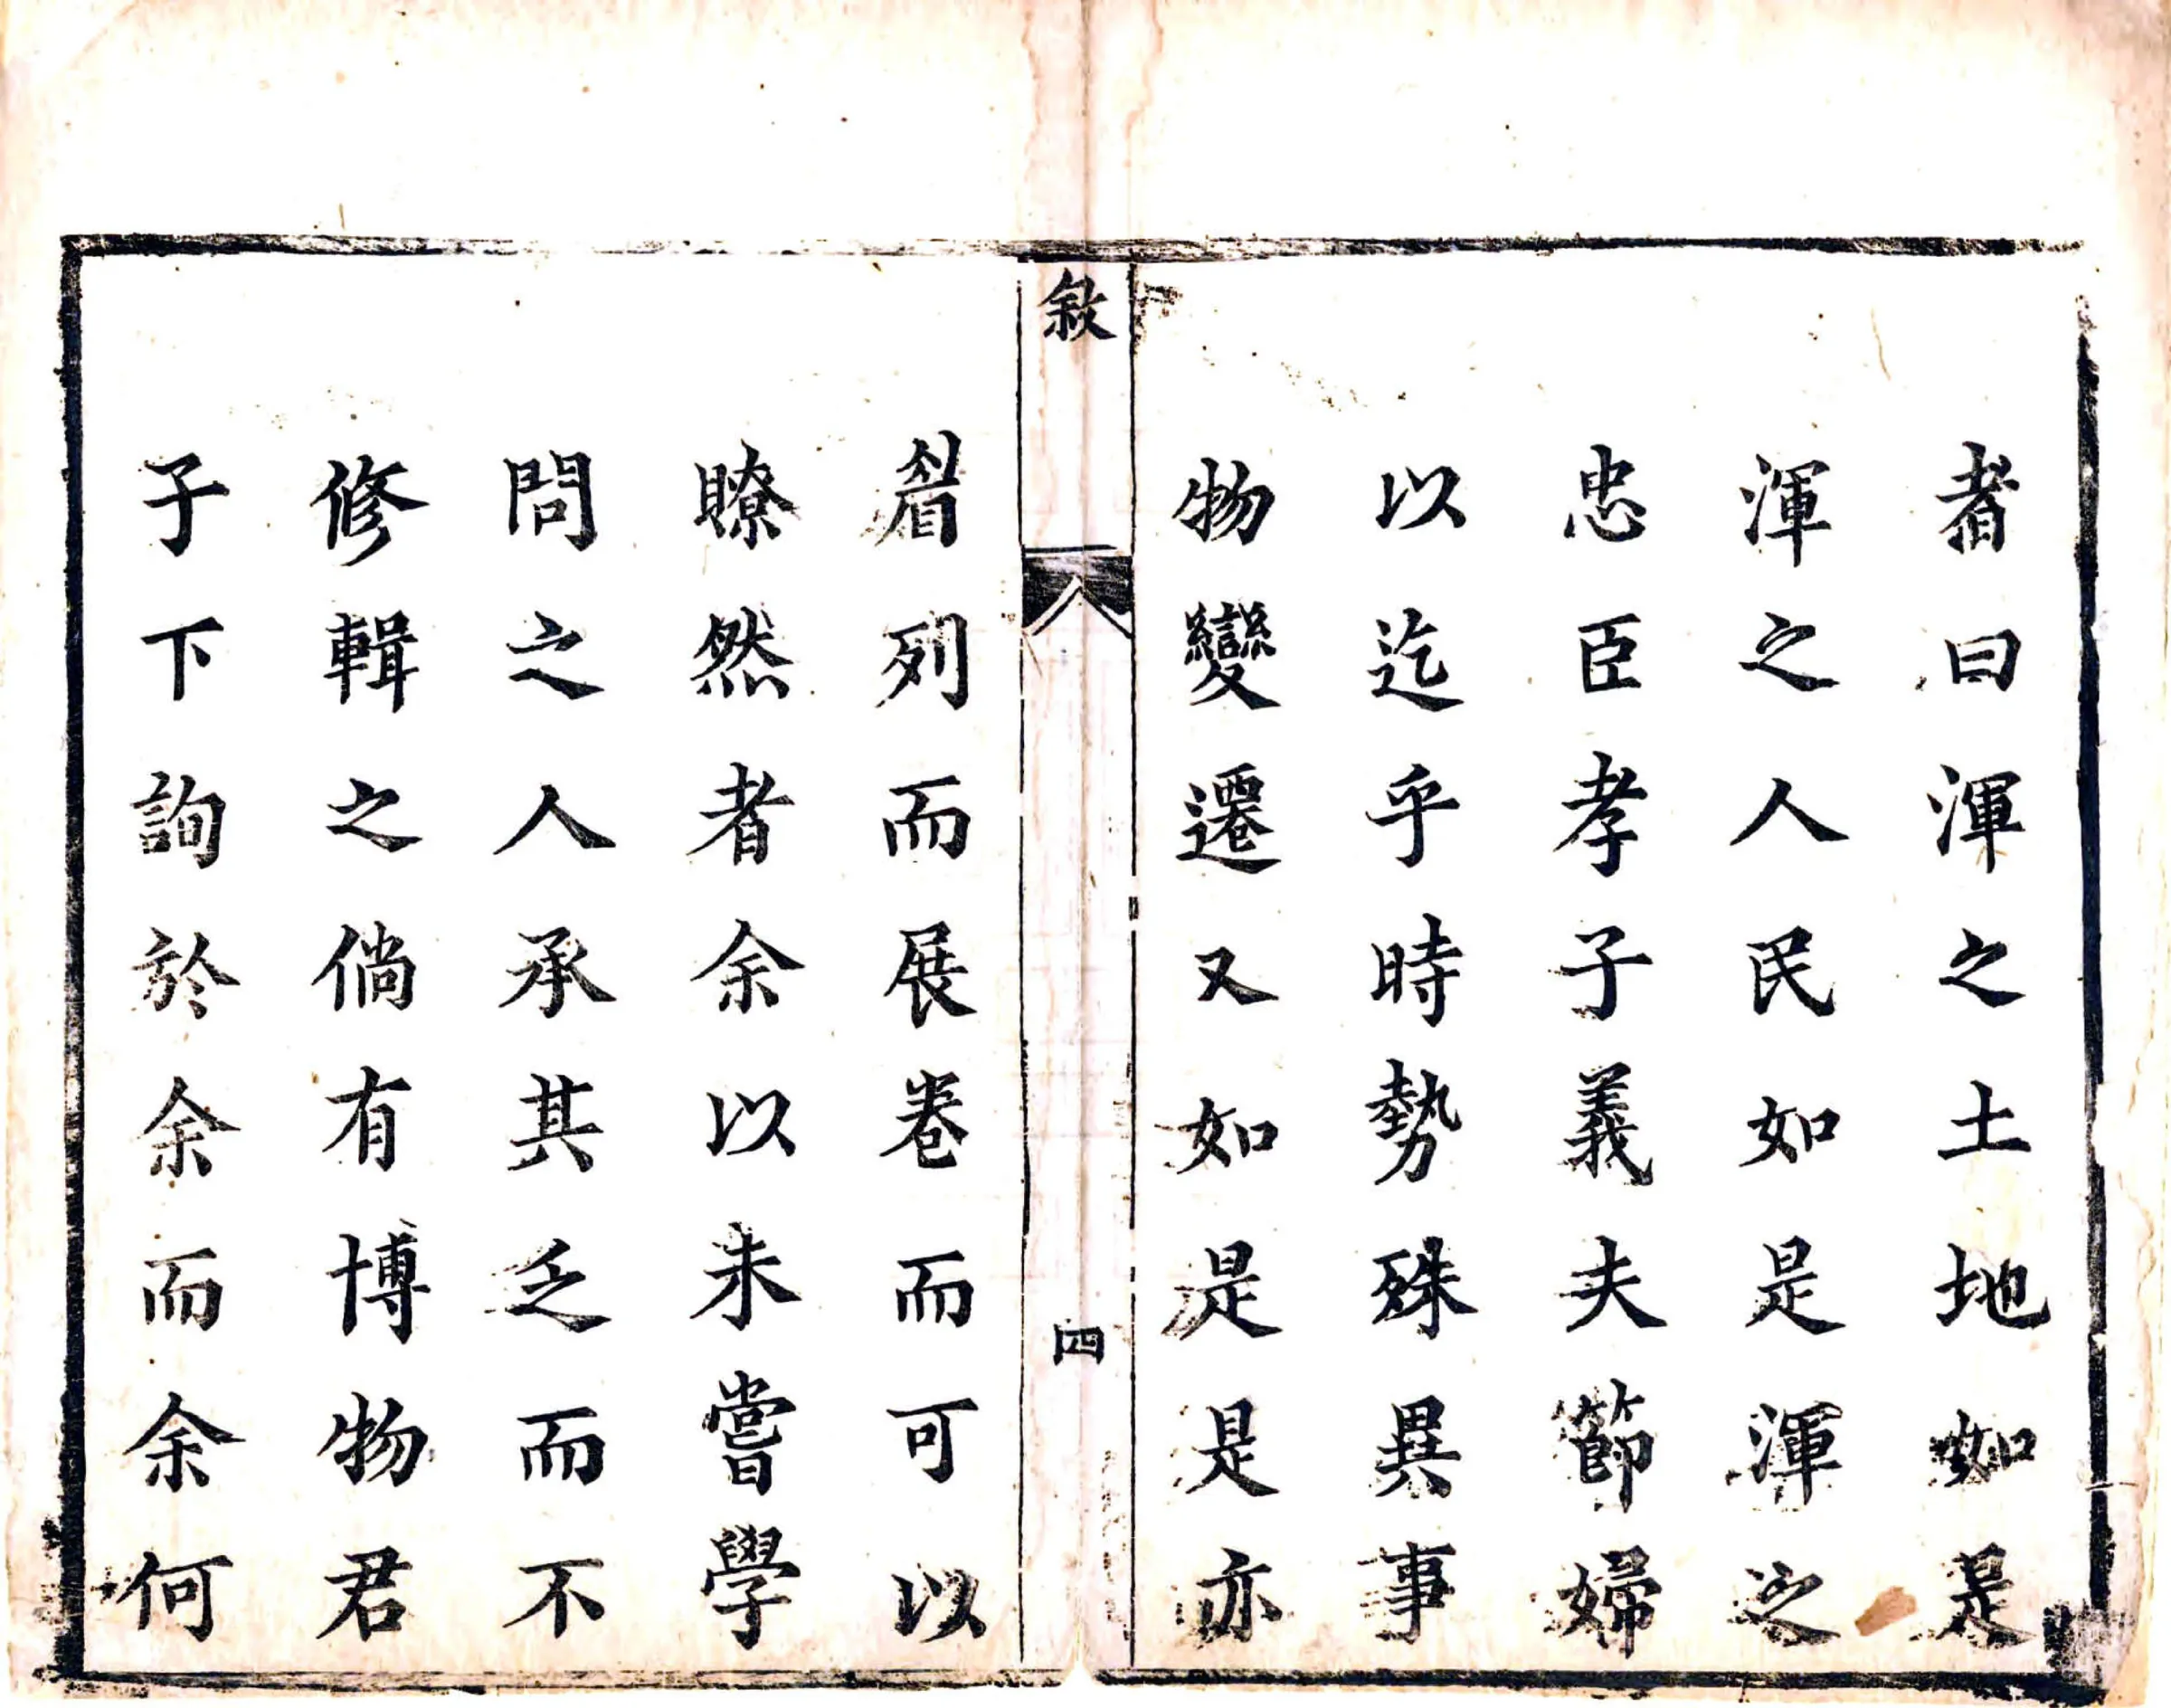 者曰渾之土地如是
渾之人民如是渾之
忠臣孝子義夫節婦
以迄乎時勢殊異事
物變遷又如是是亦
敘
四
眉列而展卷而可以
瞭然者余以未嘗學
問之人承其乏而不
修輯之倘有博物君
子下詢於余而余何